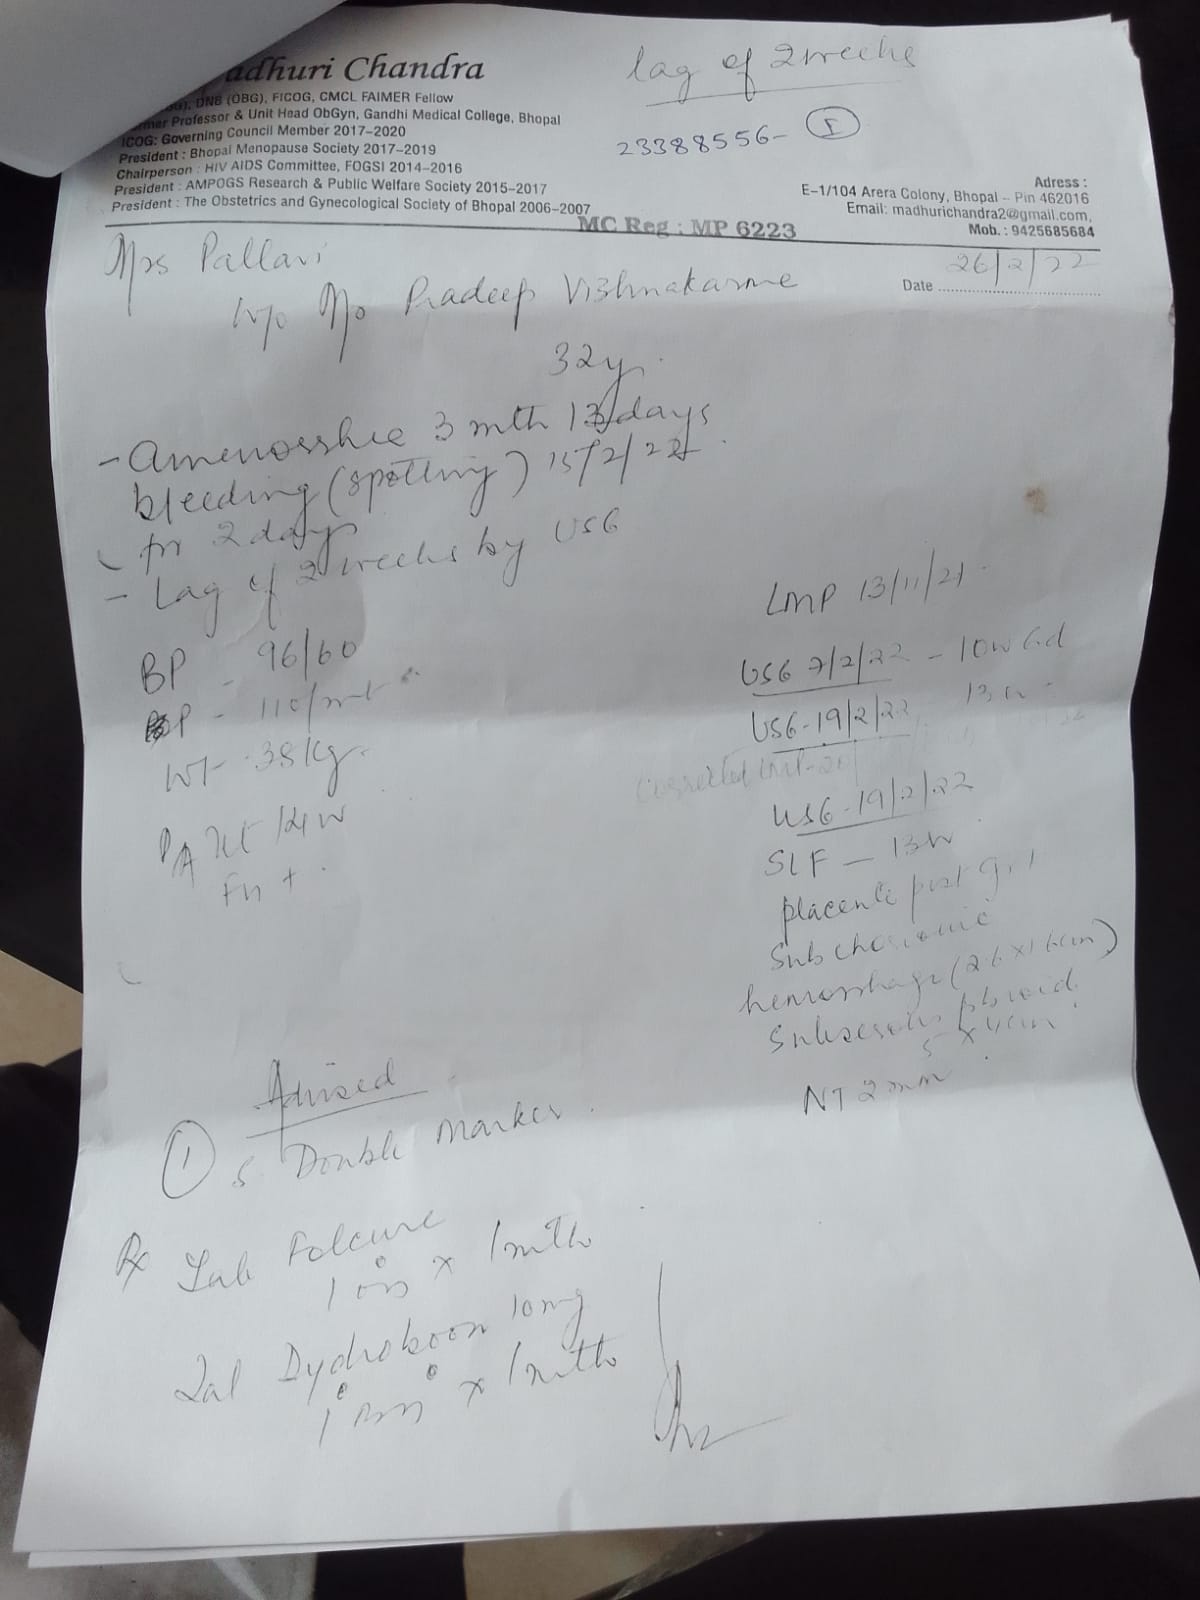 adhuri Chandra
DNB (OBG), FICOG, CMCL FAIMER Fellow
Professor & Unit Head ObGyn, Gandhi Medical College, Bhopal
ICOG: Governing Council Member 2017-2020
President : Bhopal Menopause Society 2017-2019
Chairperson : HIV AIDS Committee, FOGSI 2014-2016
President : AMPOGS Research & Public Welfare Society 2015-2017
President : The Obstetrics and Gynecological Society of Bhopal 2006-2007
lag of 2 weeks
23388556- I
Adress :
E-1/104 Arera Colony, Bhopal -- Pin 462016
Email: madhurichandra2@gmail.com,
Mob. : 9425685684
MC Reg : MP 6223
Date 26/2/22
Mrs Pallavi
W/o Pradeep Vishnakarme
32y
- Amenorrhea 3 mth 13 days
bleeding (spotting) 15/2/22
for 2 days
- Lag of 2 weeks by USG
BP - 96/60
P - 110/mt
Wt - 38 kg
PA Ut 14 w
LMP 13/11/21
USG 7/2/22 - 10w 6d
USG - 19/2/22 13 w
Corrected
USG - 19/2/22
SLF - 13w
placenta post
Subchorionic
hemorrhage (2.6 x 1.6cm)
Subserous fibroid
5 x 4cm
NT 2 mm
Advised
1 S. Double Marker
Rx Tab Folcure
1 OD x 1 mth
Tab Dydroboon 10mg
1 x 1 mth